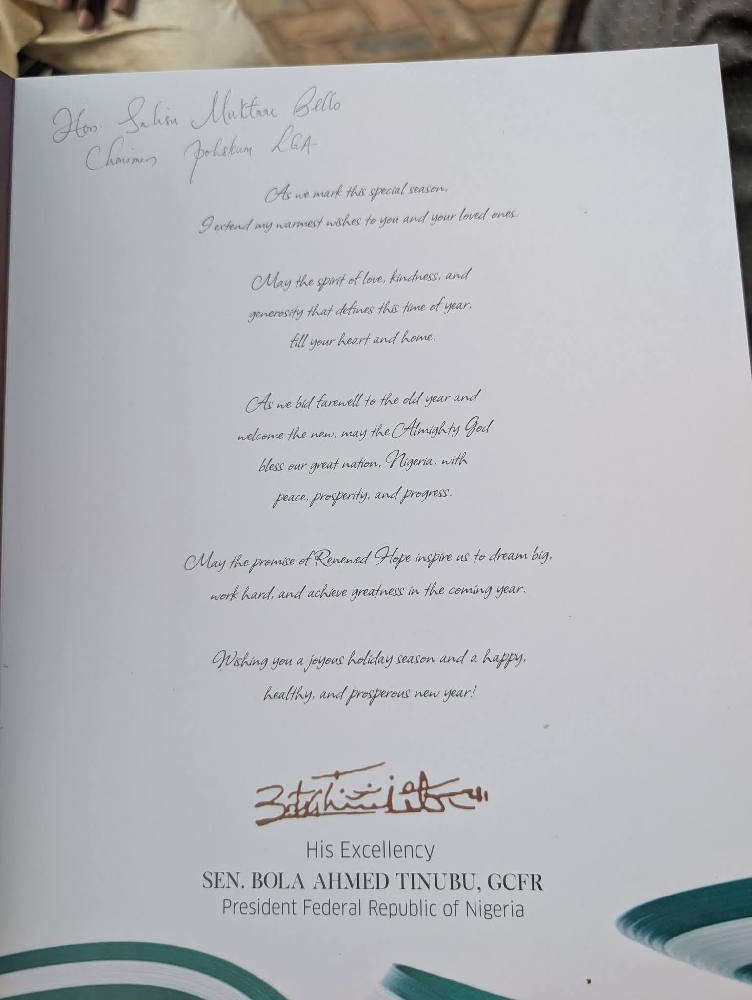 Hon. Salisu Muktar Bello
Chairman Potiskum LGA
As we mark this special season,
I extend my warmest wishes to you and your loved ones.
May the spirit of love, kindness, and
generosity that defines this time of year,
fill your heart and home.
As we bid farewell to the old year and
welcome the new, may the Almighty God
bless our great nation, Nigeria, with
peace, prosperity, and progress.
May the promise of Renewed Hope inspire us to dream big,
work hard, and achieve greatness in the coming year.
Wishing you a joyous holiday season and a happy,
healthy, and prosperous new year!
His Excellency
SEN. BOLA AHMED TINUBU, GCFR
President Federal Republic of Nigeria